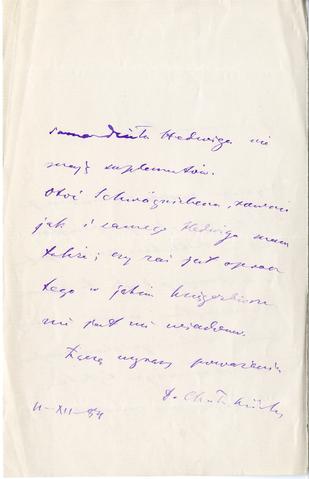 same dzieła Hedwiga nie
mają suplementów.
Otóż Schwägrichena, zarówno
jak i samego Hedwiga mam
także; czy zaś jest oprócz
tego w jakim księgozbiorze
nie jest mi wiadomo.
Łączę wyrazy poważania
11-XII-84